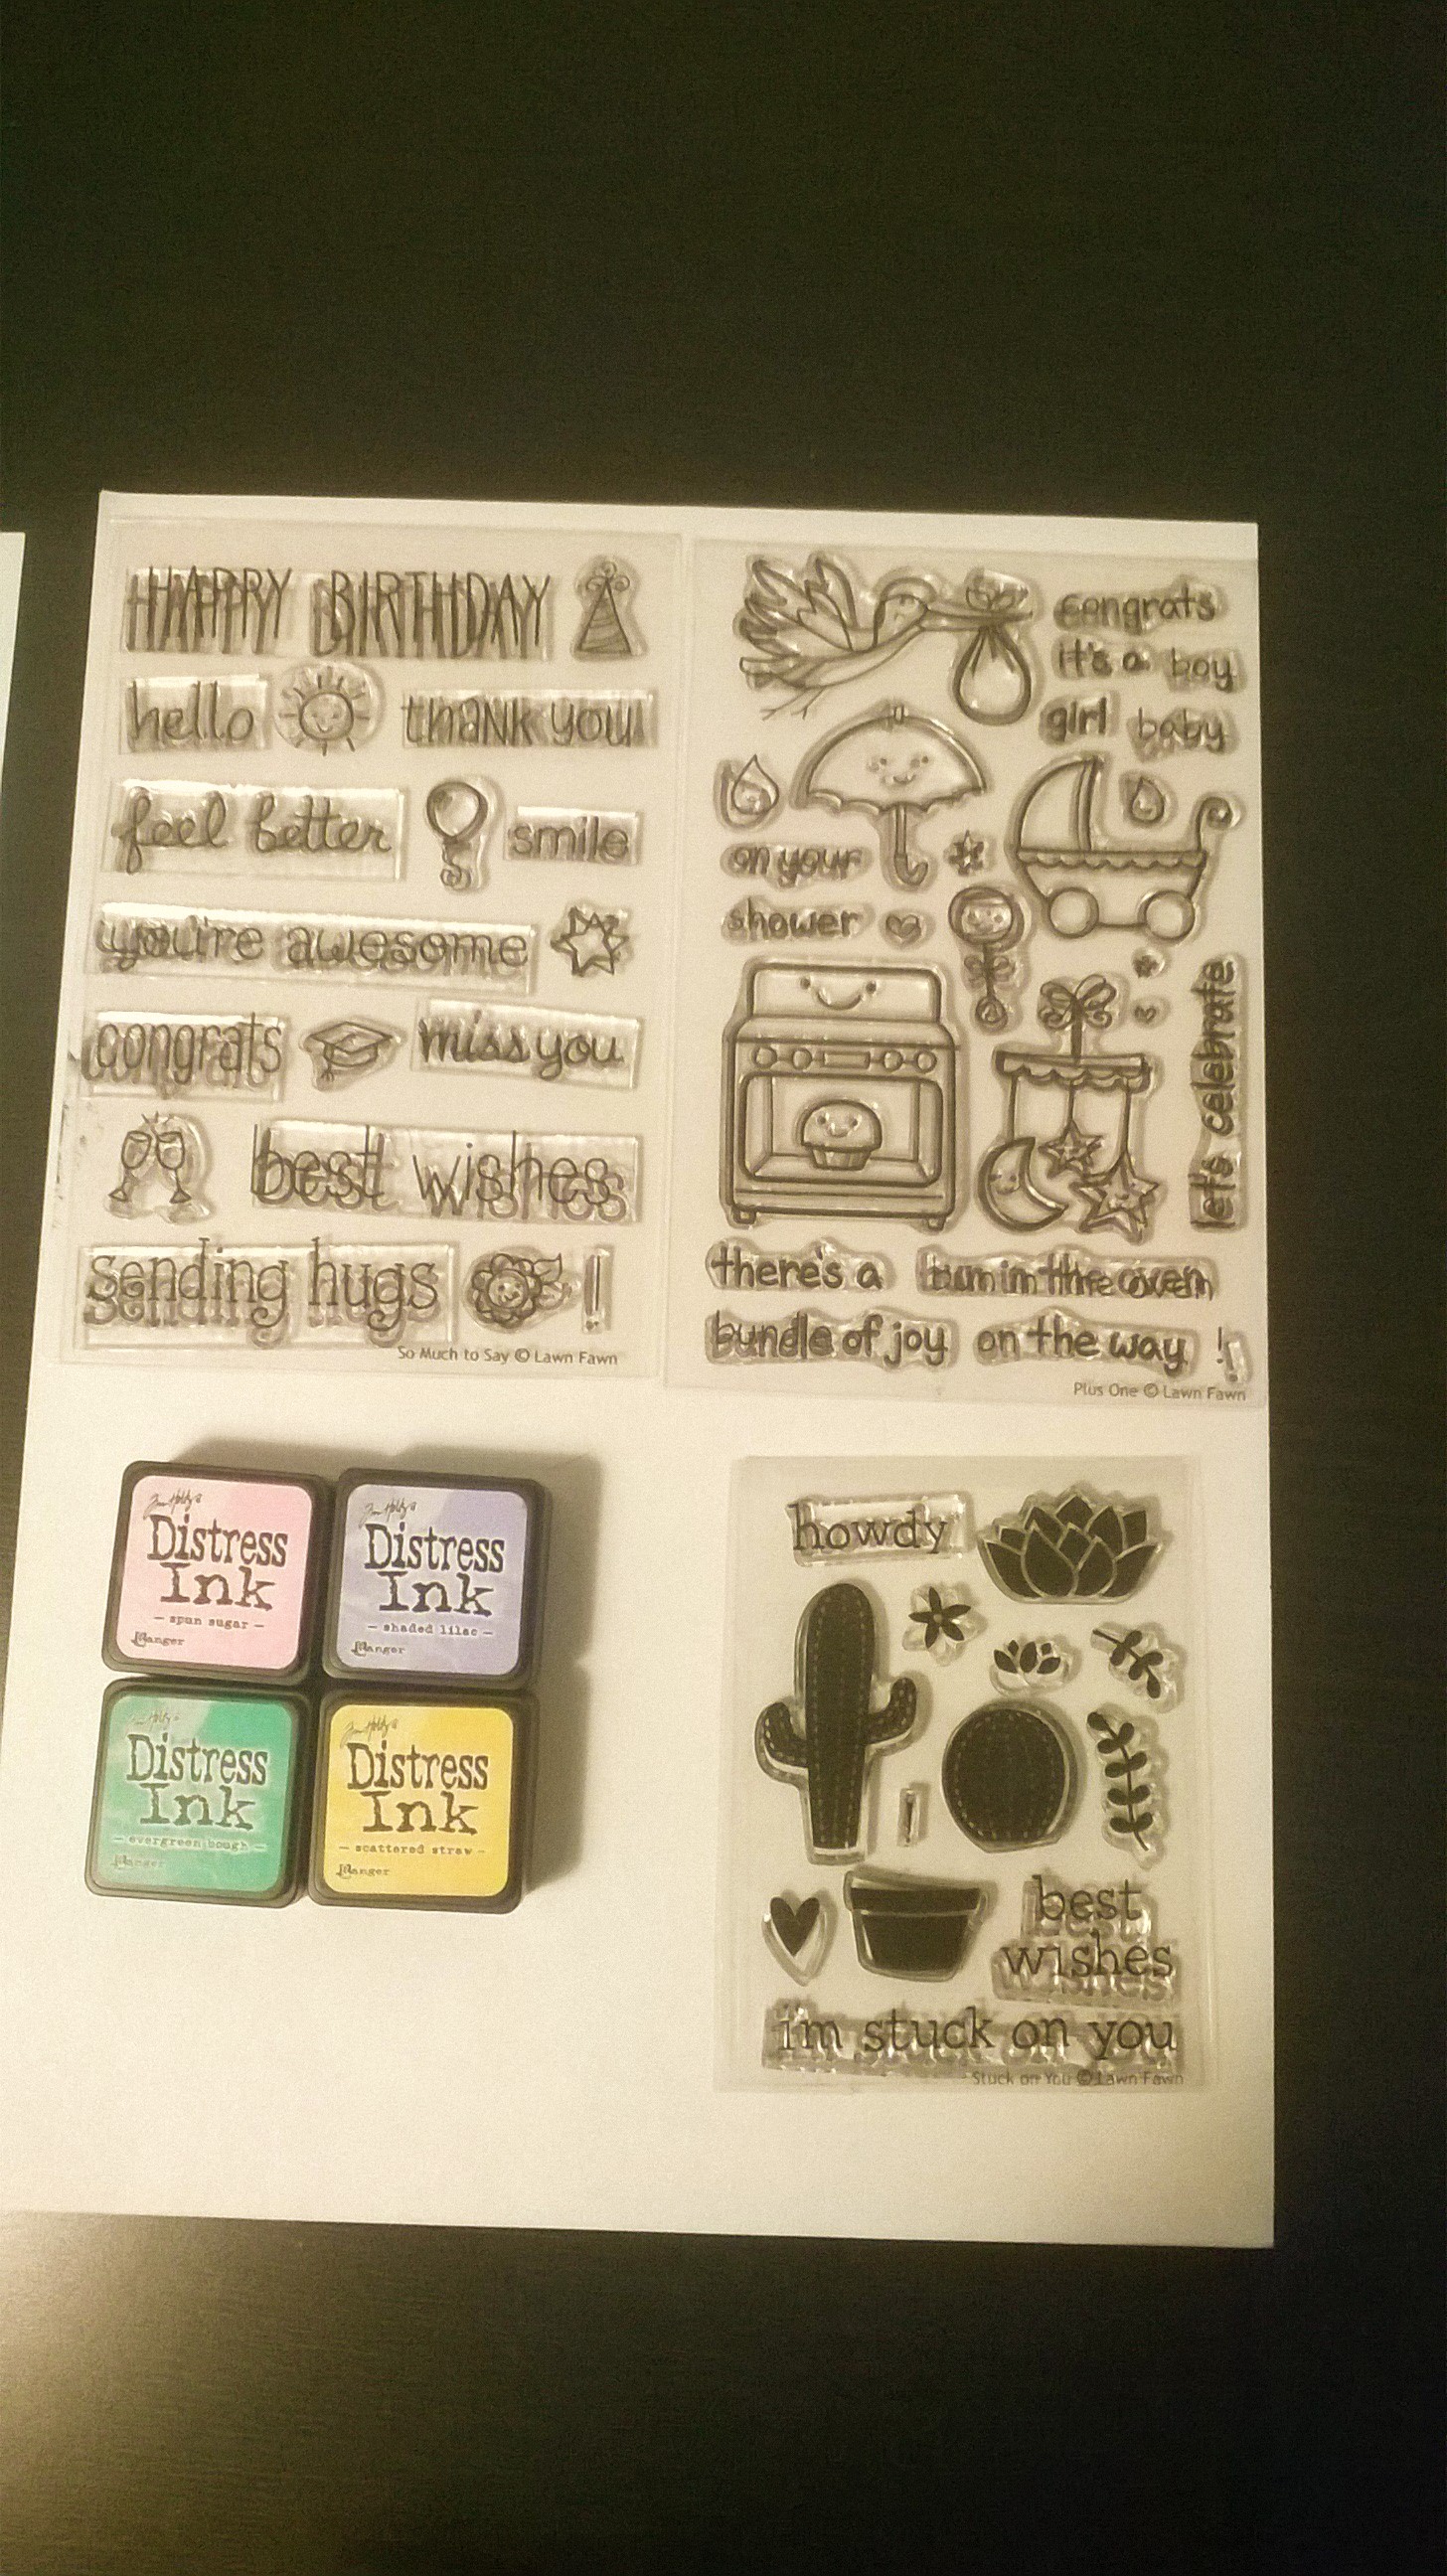 HAPPY BIRTHDAY
hello thank you
feel better smile
you're awesome
congrats miss you
best wishes
sending hugs !
So Much to Say © Lawn Fawn
congrats
it's a boy
girl baby
on your
shower
let's celebrate
there's a bun in the oven
bundle of joy on the way !
Plus One © Lawn Fawn
Tim Holtz®
Distress
Ink
— spun sugar —
Ranger
Tim Holtz®
Distress
Ink
— shaded lilac —
Ranger
Tim Holtz®
Distress
Ink
— evergreen bough —
Ranger
Tim Holtz®
Distress
Ink
— scattered straw —
Ranger
howdy
!
best
wishes
i'm stuck on you
Stuck on You © Lawn Fawn